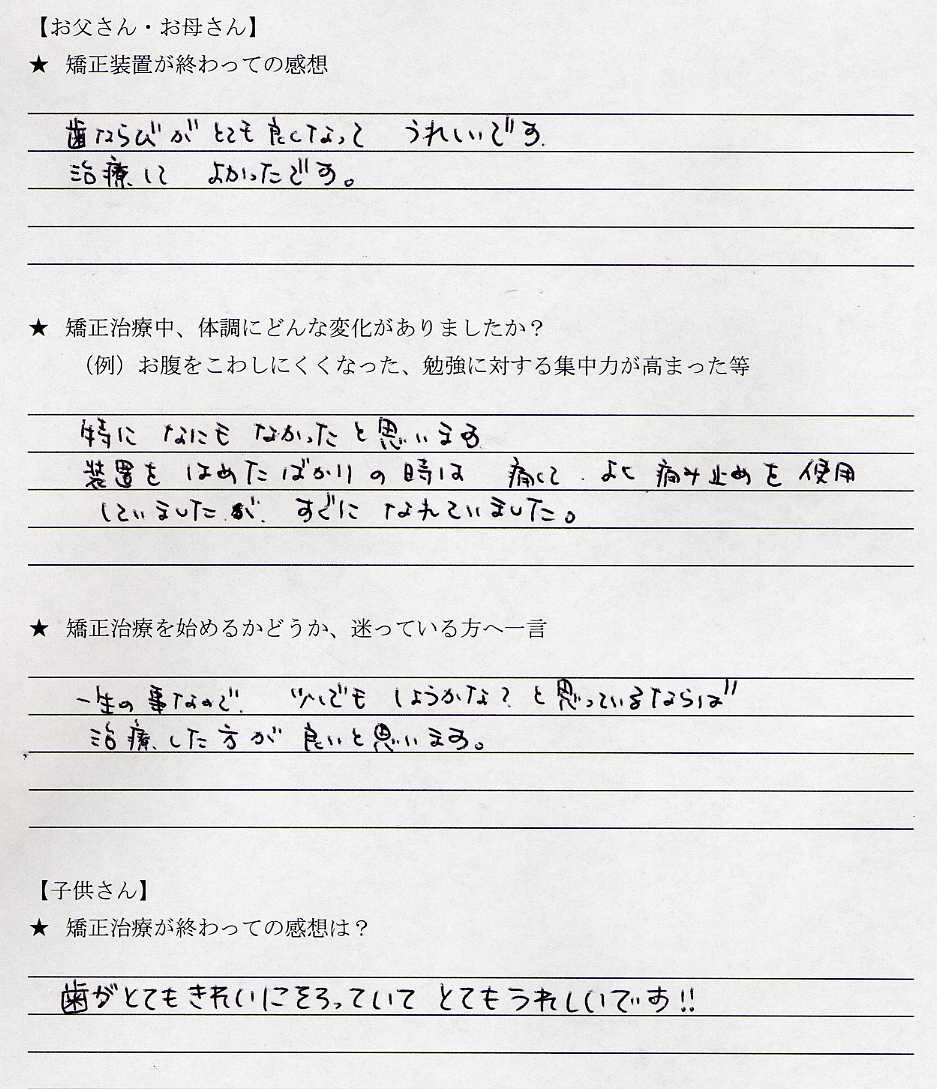 【お父さん・お母さん】
★ 矯正装置が終わっての感想
歯ならびがとても良くなって うれしいです.
治療して よかったです。
★ 矯正治療中、体調にどんな変化がありましたか？
（例）お腹をこわしにくくなった、勉強に対する集中力が高まった等
特に なにも なかったと思います
装置を はめたばかりの時は 痛くて よく 痛み止めを 使用
していましたが. すぐに なれていました。
★ 矯正治療を始めるかどうか、迷っている方へ一言
一生の事なので. "少しでも しようかな？と思っているならば"
治療した方が 良いと思います。
【子供さん】
★ 矯正治療が終わっての感想は？
歯がとてもきれいにそろっていて とてもうれしいです!!